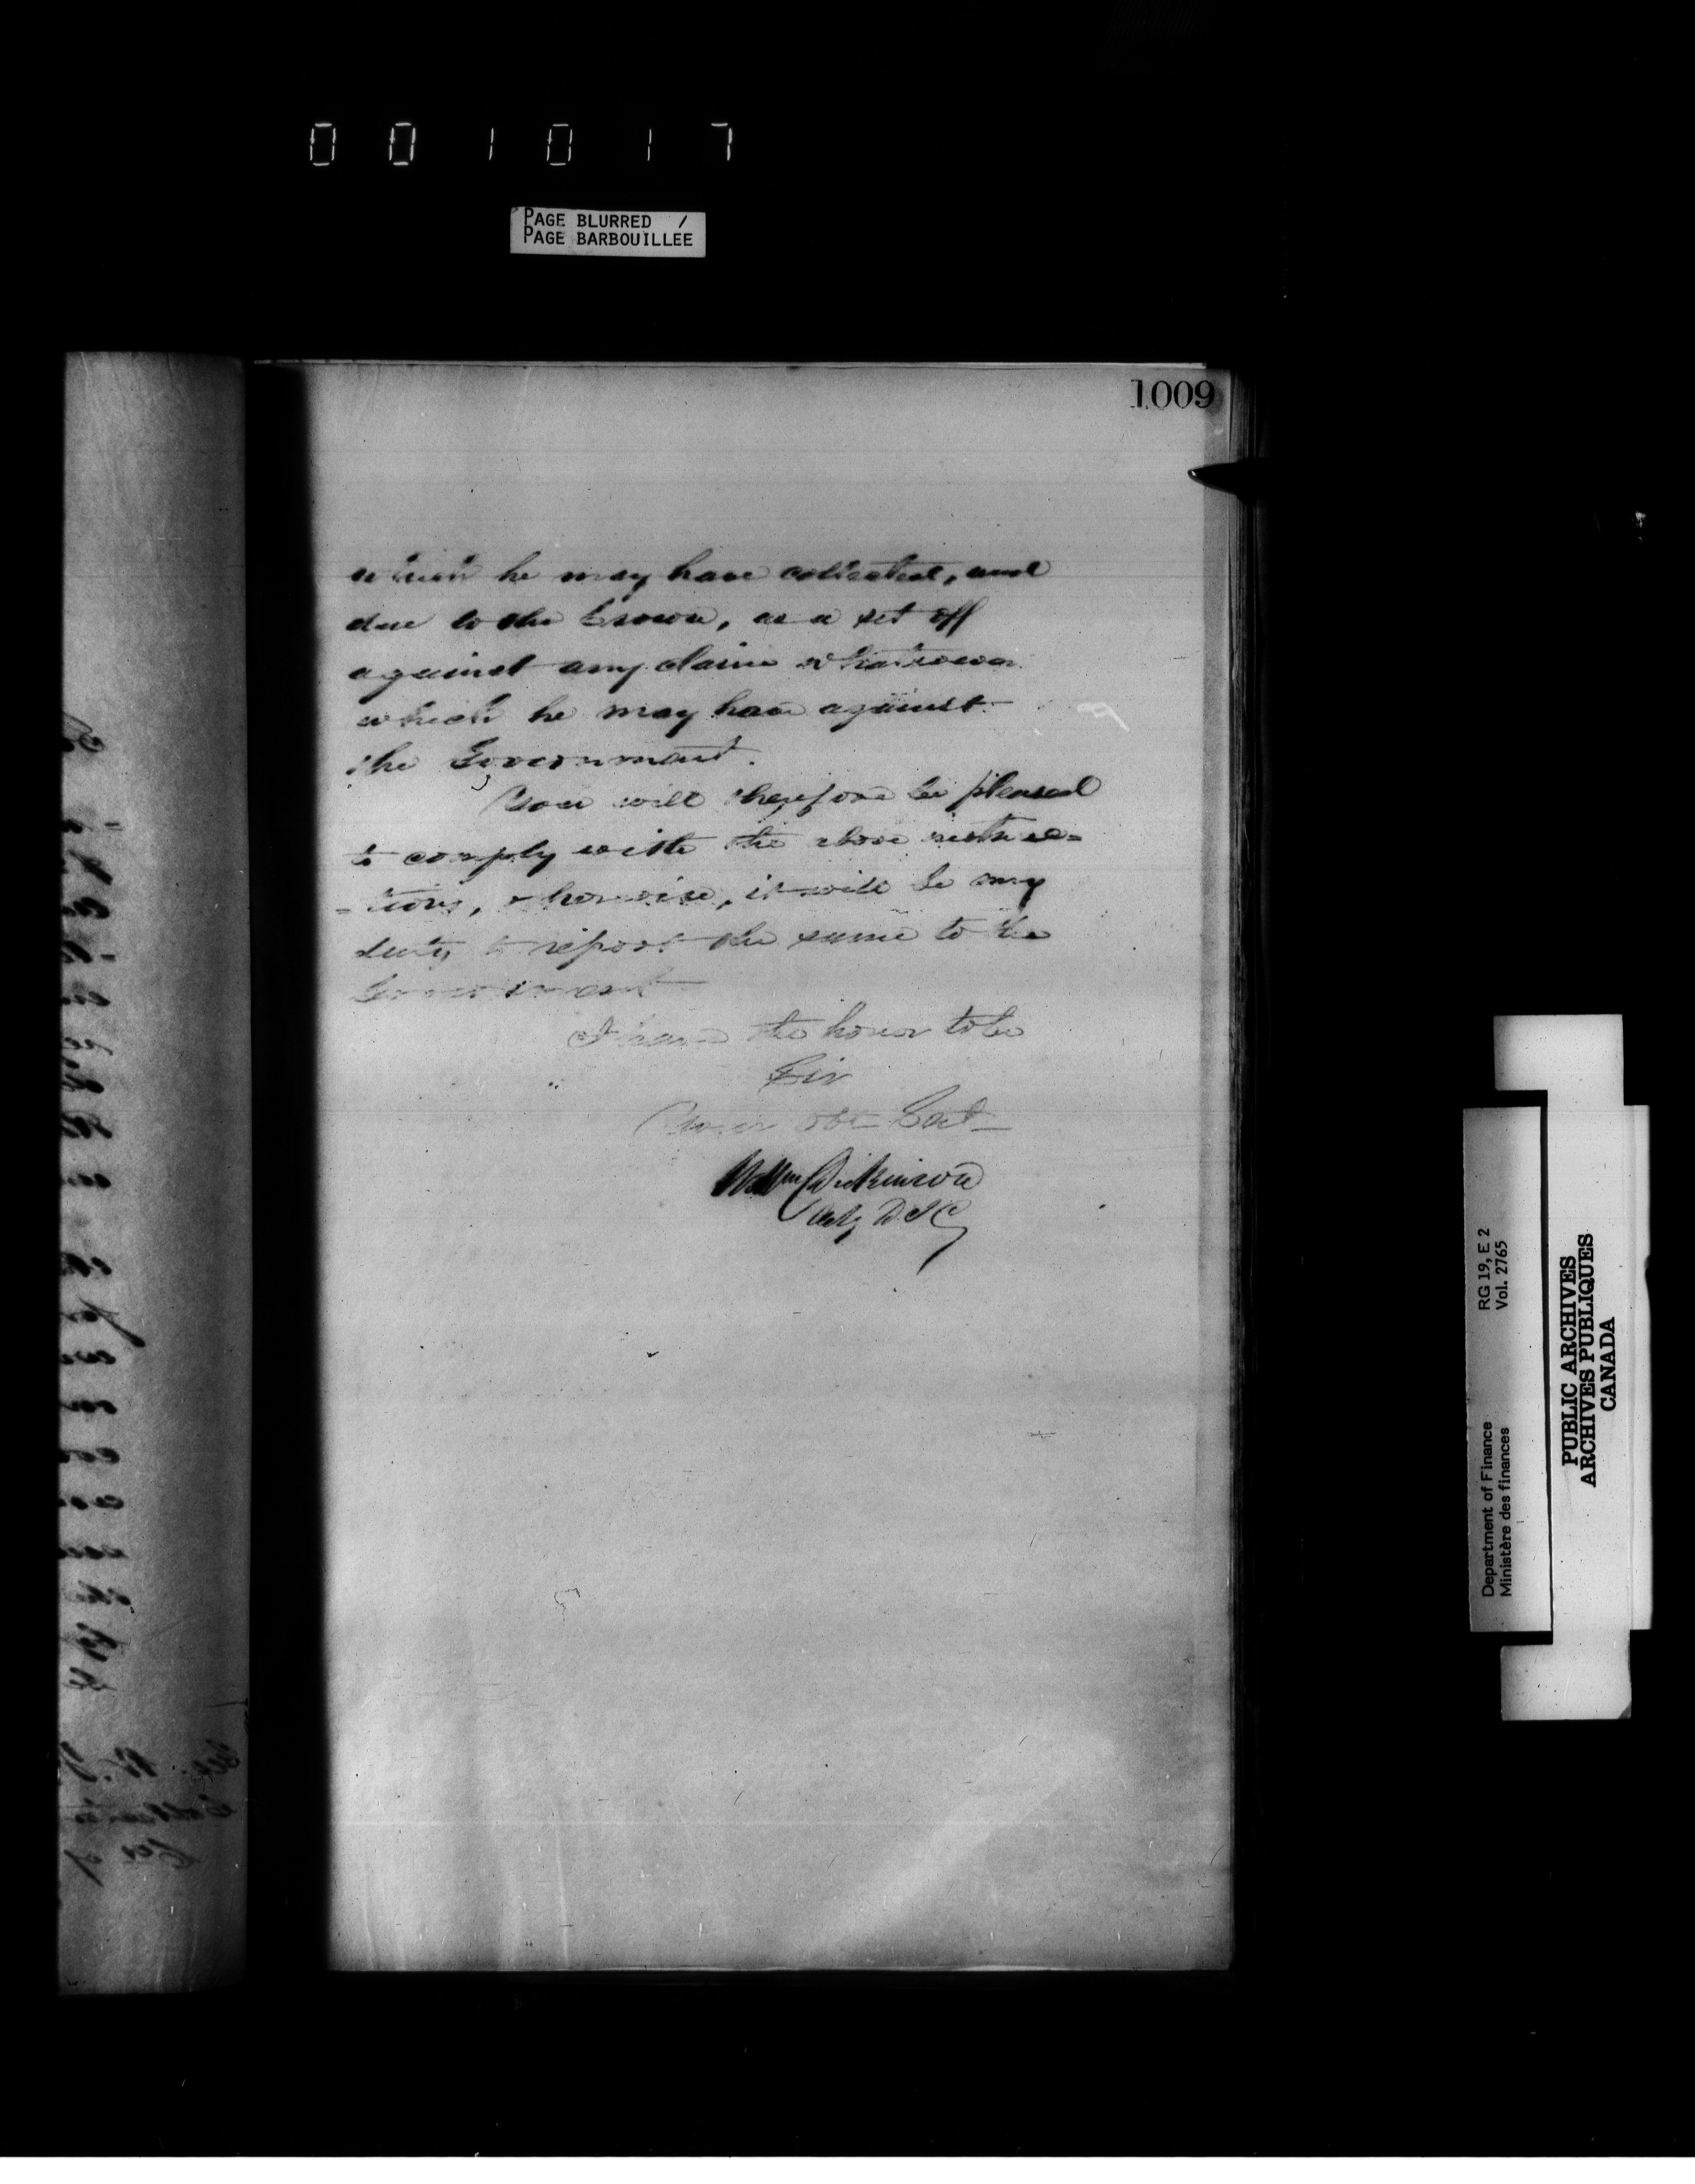 001017
PAGE BLURRED /
PAGE BARBOUILLEE
1009
which he may have collected, and
due to the Crown, as a set off
against any claim whatsoever
which he may have against
the Government.
You will therefore be pleased
to comply with the above instruc=
=tions, otherwise, it will be my
duty to report the same to the
Government
I have the honor to be
Sir
Your obt Svt
Wm Dickinson
Actg D I G
RG 19, E 2
Vol. 2765
Department of Finance
Ministère des finances
PUBLIC ARCHIVES
ARCHIVES PUBLIQUES
CANADA